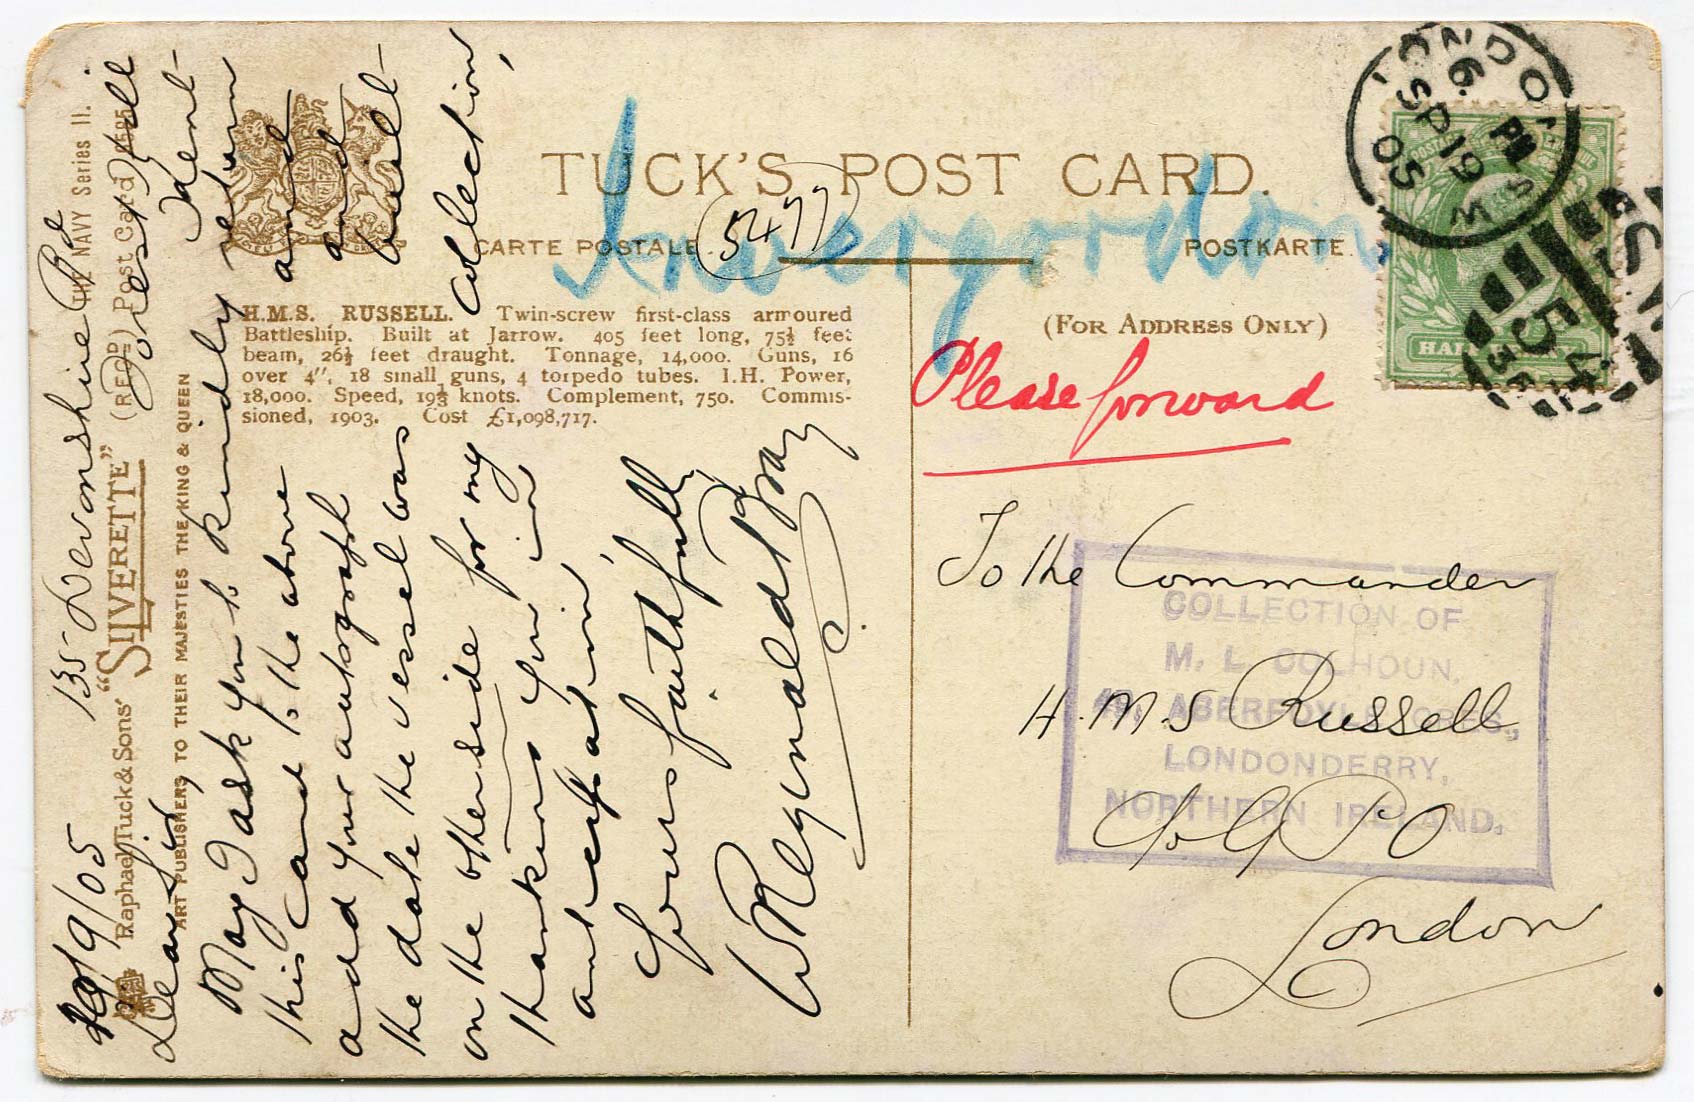 TUCK'S POST CARD.
CARTE POSTALE.
POSTKARTE.
5477
Invergordon
(FOR ADDRESS ONLY)
Please forward
To the Commander
H.M.S Russell
c/o G P O
London
COLLECTION OF
M. L. COLHOUN,
49, ABERFOYLE CRES.,
LONDONDERRY,
NORTHERN IRELAND.
LONDON W.S
6. PM
SP 19
05
HALFPENNY
H.M.S. RUSSELL. Twin-screw first-class armoured
Battleship. Built at Jarrow. 405 feet long, 75½ feet
beam, 26½ feet draught. Tonnage, 14,000. Guns, 16
over 4", 18 small guns, 4 torpedo tubes. I.H. Power,
18,000. Speed, 19¾ knots. Complement, 750. Commis-
sioned, 1903. Cost £1,098,717.
Raphael Tuck & Sons' "SILVERETTE" (REGD) Post Card
THE NAVY Series II.
ART PUBLISHERS TO THEIR MAJESTIES THE KING & QUEEN
19/9/05 135 Devonshire Rd
Forest Hill
Dear Sir,
May I ask you to kindly return
this card to the above and
add your autograph and
the date the vessel was built
on the other side for my collection,
thanking you in
anticipation,
Yours faithfully
W Reynald Bray